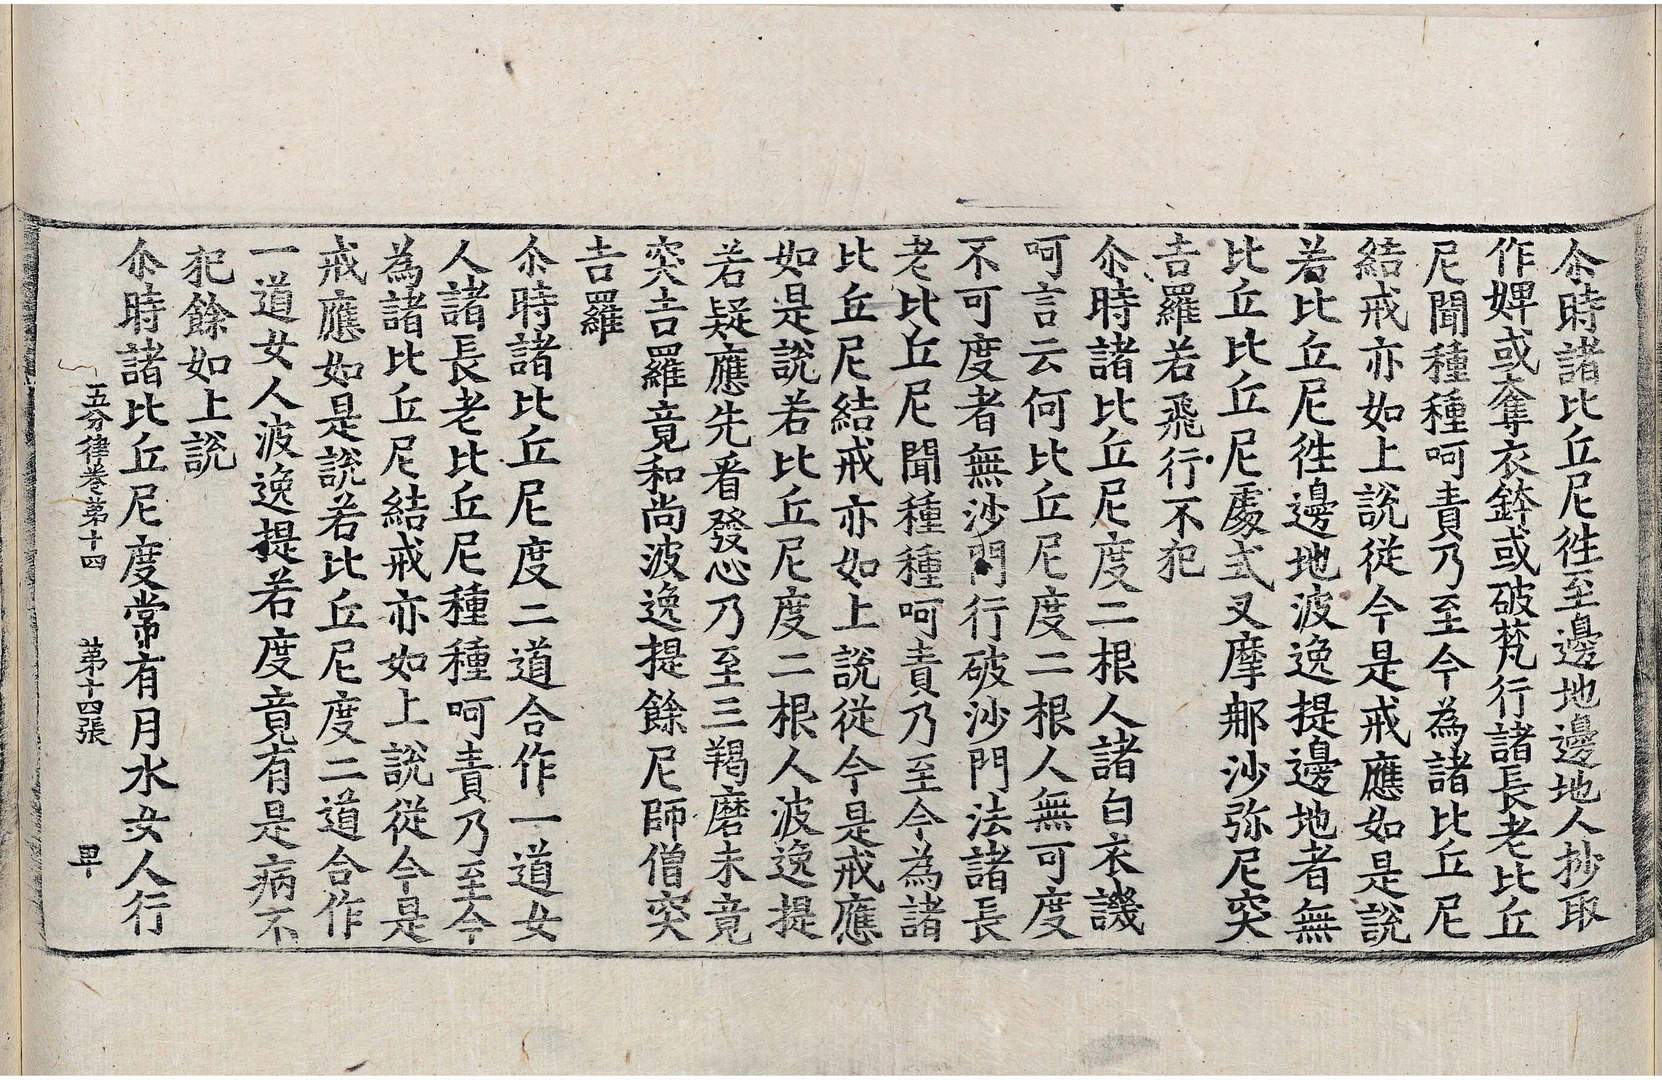 尒時諸比丘尼徃至邊地邊地人抄取
作婢或奪衣鉢或破梵行諸長老比丘
尼聞種種呵責乃至今為諸比丘尼
結戒亦如上說從今是戒應如是說
若比丘尼徃邊地波逸提邊地者無
比丘比丘尼處式叉摩那沙弥尼突
吉羅若飛行不犯
尒時諸比丘尼度二根人諸白衣譏
呵言云何比丘尼度二根人無可度
不可度者無沙門行破沙門法諸長
老比丘尼聞種種呵責乃至今為諸
比丘尼結戒亦如上說從今是戒應
如是說若比丘尼度二根人波逸提
若疑應先看發心乃至三羯磨未竟
突吉羅竟和尚波逸提餘尼師僧突
吉羅
尒時諸比丘尼度二道合作一道女
人諸長老比丘尼種種呵責乃至今
為諸比丘尼結戒亦如上說從今是
戒應如是說若比丘尼度二道合作
一道女人波逸提若度竟有是病不
犯餘如上說
尒時諸比丘尼度常有月水女人行
五分律卷第十四 第十四張